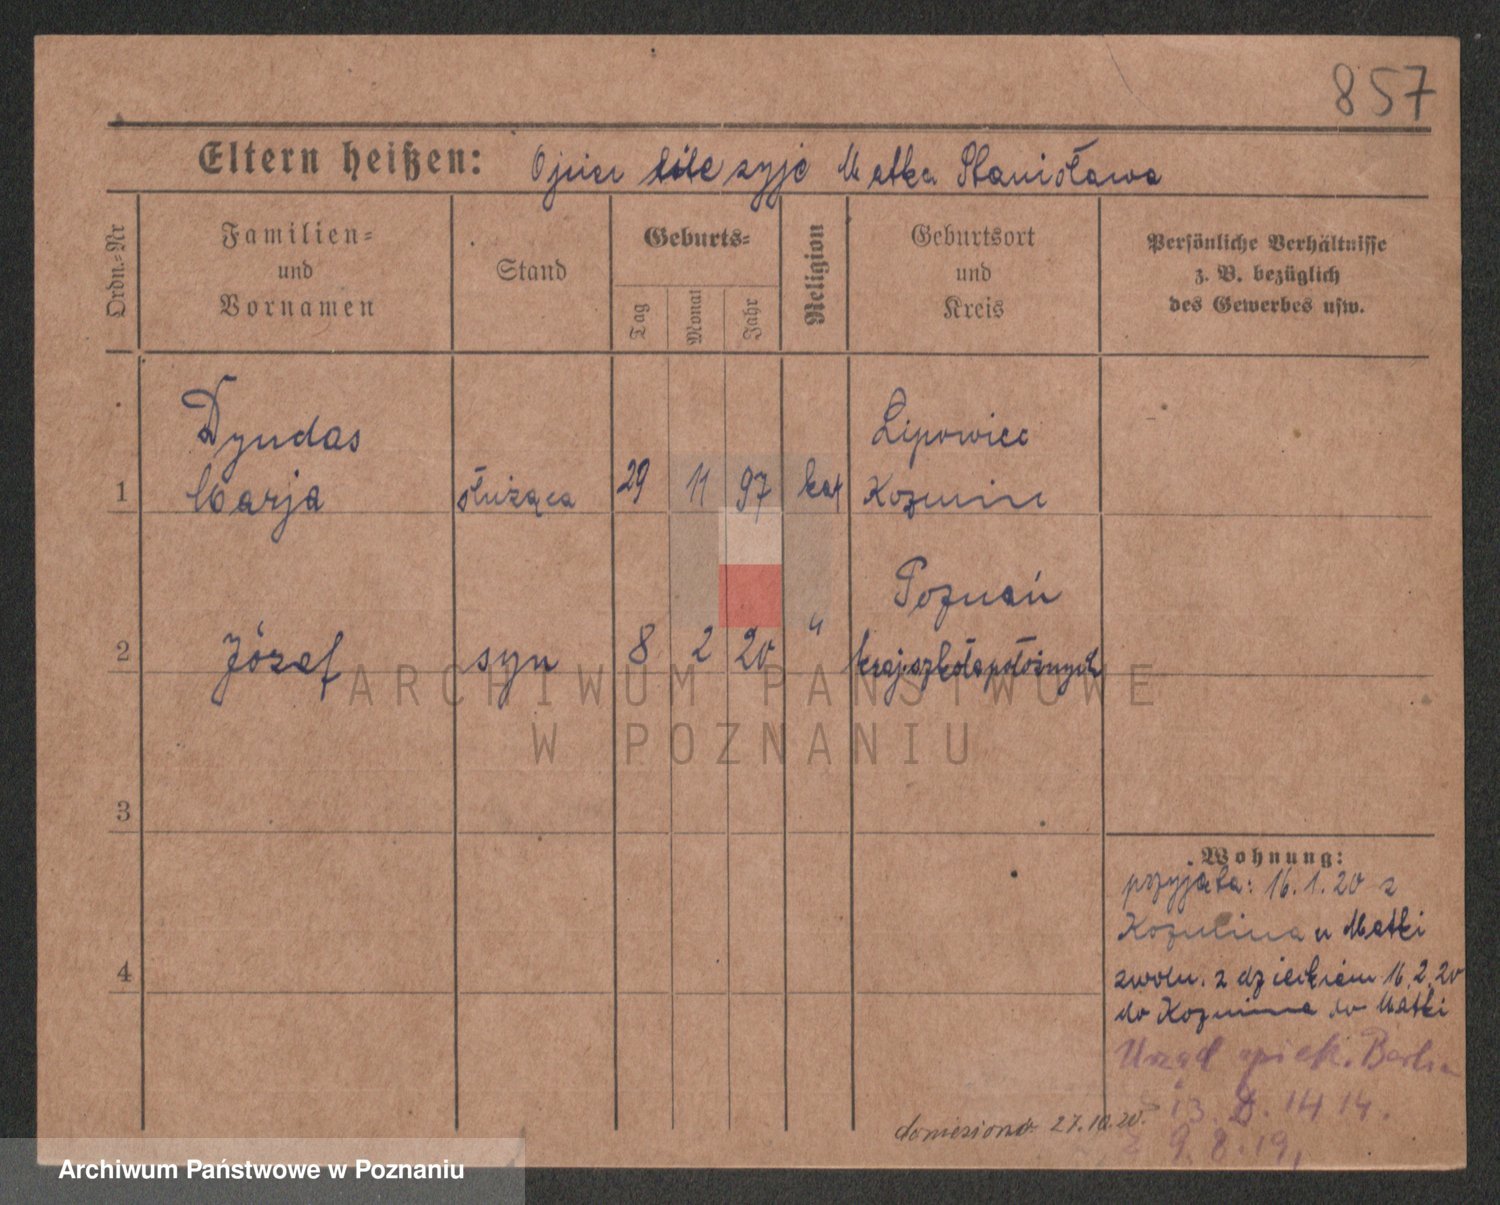 857
Eltern heißen: Ojciec nie żyje Matka Stanisława
Ordn.-Nr
Familien-
und
Vornamen
Stand
Geburts-
Tag
Monat
Jahr
Religion
Geburtsort
und
Kreis
Persönliche Verhältnisse
z. B. bezüglich
des Gewerbes usw.
Dyndas
Lipowiec
1 Marja służąca 29 11 97 kat Kozmin
Poznań
2 Józef syn 8 2 20 " kraj.szkoła położnych
ARCHIWUM PAŃSTWOWE
W POZNANIU
3
Wohnung:
przyjęta: 16.1.20 z
Kozmina u Matki
4
zwoln. z dzieckiem 16.2.20
do Kozmina do Matki
Urząd opiek. Berlin
13. D. 14 14.
doniesiono 27.10.20.
z 9.8.19.
Archiwum Państwowe w Poznaniu